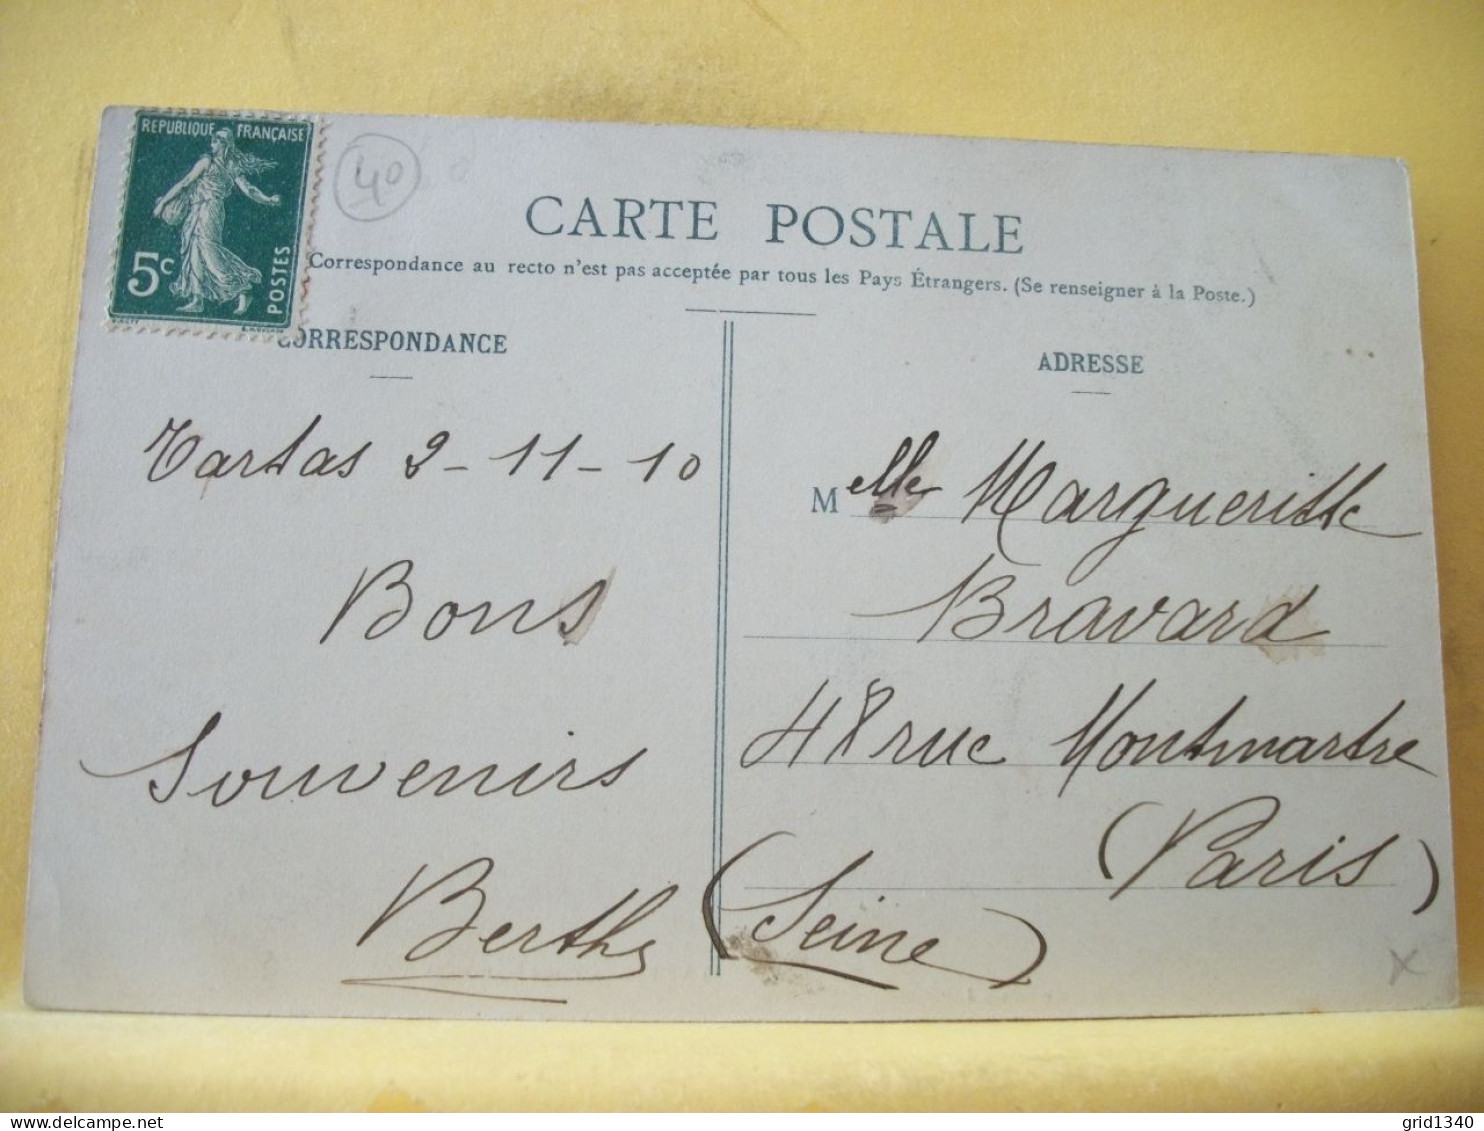 REPUBLIQUE FRANÇAISE
5c
POSTES
40
CARTE POSTALE
Correspondance au recto n'est pas acceptée par tous les Pays Étrangers. (Se renseigner à la Poste.)
CORRESPONDANCE
Tartas 2-11-10
Bons
Souvenirs
Berthe
ADRESSE
Melle Margueritte
Bravard
48 rue Montmartre
(Paris)
(Seine)
x
delcampe.net
grid1340